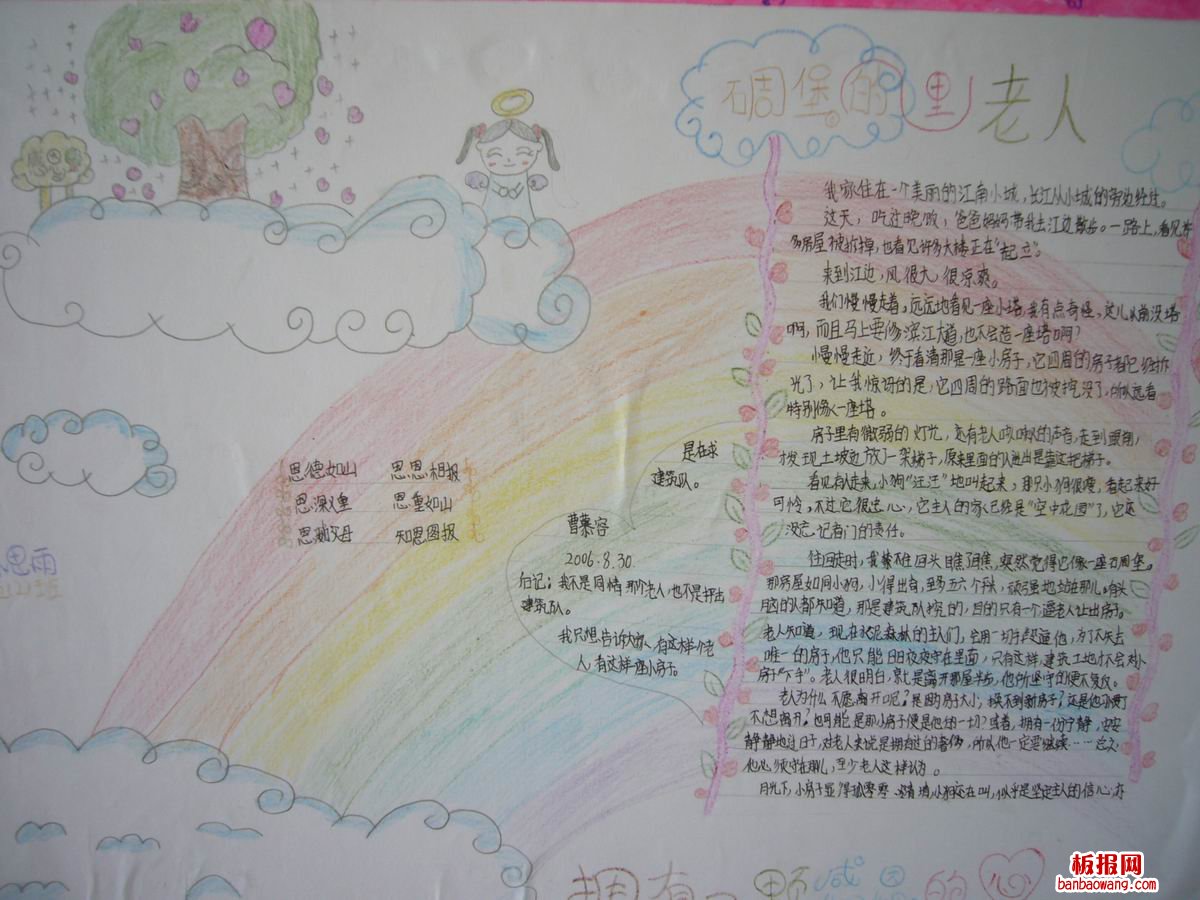 碉堡的里老人
我家住在一个美丽的江南小城，长江从小城的旁边经过。
这天，吃过晚饭，爸爸妈妈带我去江边散步。一路上，看见许
多房屋被拆掉，也看见许多大楼正在“起立”。
来到江边，风很大，很凉爽。
我们慢慢走着，远远地看见一座小塔，我有点奇怪，这儿以前没塔
啊，而且马上要修滨江大道，也不会造一座塔啊？
慢慢走近，终于看清那是一座小房子，它四周的房子都已经拆
光了，让我惊讶的是，它四周的路面也被挖没了，所以远看
特别像一座塔。
房子里有微弱的灯光，还有老人咳嗽的声音，走到跟前，
才发现土坡边放了一架梯子，原来里面的人进出是靠这把梯子。
看见有人走来，小狗“汪汪”地叫起来，那只小狗很瘦，看起来好
可怜，不过它很忠心，它主人的家已经是“空中花园”了，它还
没忘记看门的责任。
往回走时，我禁不住回头瞧了瞧，突然觉得它像一座碉堡。
那房屋如同小狗，小得出奇，至多五六个平米，顽强地站在那儿。有头
脑的人都知道，那是建筑队挖的，目的只有一个逼老人让出房子。
老人知道，现在水泥森林的主人们，会用一切手段逼他，为了不失去
唯一的房子，他只能日日夜夜守在里面，只有这样，建筑工地才不会对小
房子“下手”。老人很明白，就是离开那屋半步，他所坚守的便不复存。
老人为什么不愿离开呢？是因为房子太小，换不到新房子？还是他
不想离开？也可能是那小房子便是他的一切？或者，拥有一份宁静，安安
静静地过日子，对老人来说是拥有过的奢侈，所以他一定要继续……总之
他必须守在那儿，至少老人这样认为。
月光下，小房子显得孤零零
小狗还在叫，似乎是坚定主人的信心，亦
是在求
建筑队。
曹慕容
2006.8.30.
后记：我不是同情那个老人，也不是抨击
建筑队。
我只想告诉大家，有这样一个老
人，有这样一座小房子。
恩德如山 恩恩相报
恩深义重 恩重如山
恩融父母 知恩图报
感恩
思雨
班
拥有一颗感恩的心
板报网
banbaowang.com